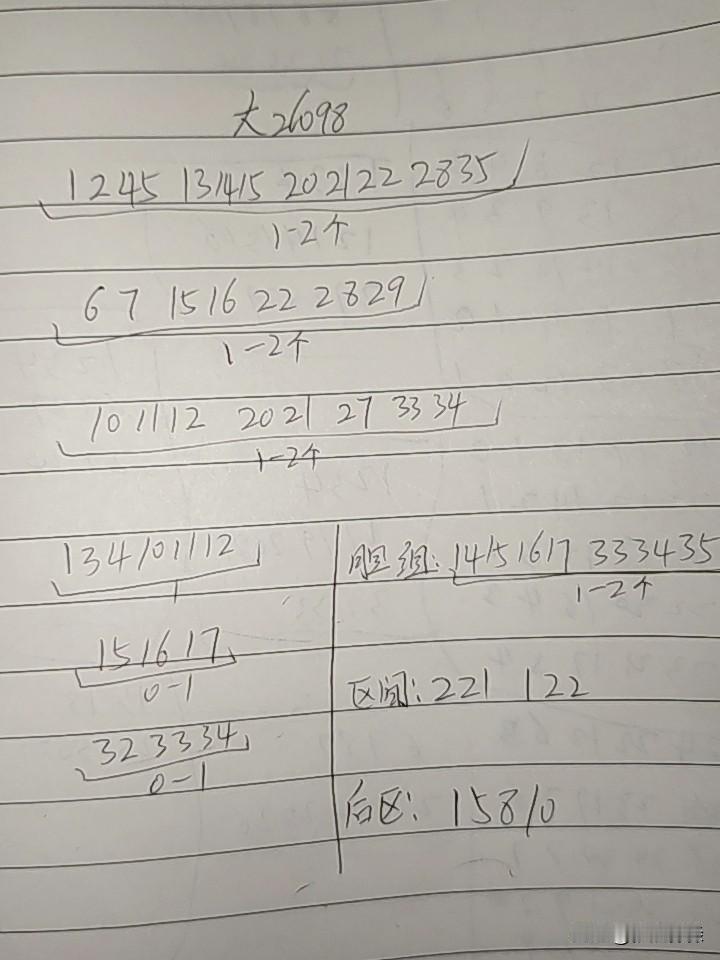 大26098
1 2 4 5 13 14 15 20 21 22 28 35
1-2个
6 7 15 16 22 28 29
1-2个
10 11 12 20 21 27 33 34
1-2个
1 3 4 10 11 12
1
15 16 17
0-1
32 33 34
0-1
胆组: 14 15 16 17 33 34 35
1-2个
区间: 221 122
后区: 1 5 8 10